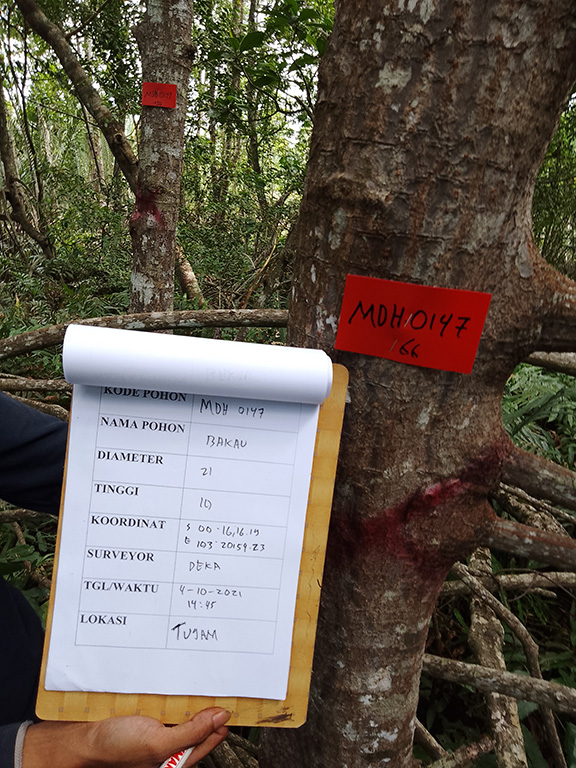 MDH/0147
166
KODE POHON MDH 0147
NAMA POHON BAKAU
DIAMETER 21
TINGGI 10
KOORDINAT S 00·16,16.19
E 103·20159.23
SURVEYOR DEKA
TGL/WAKTU 4-10-2021
14:45
LOKASI TUJAM